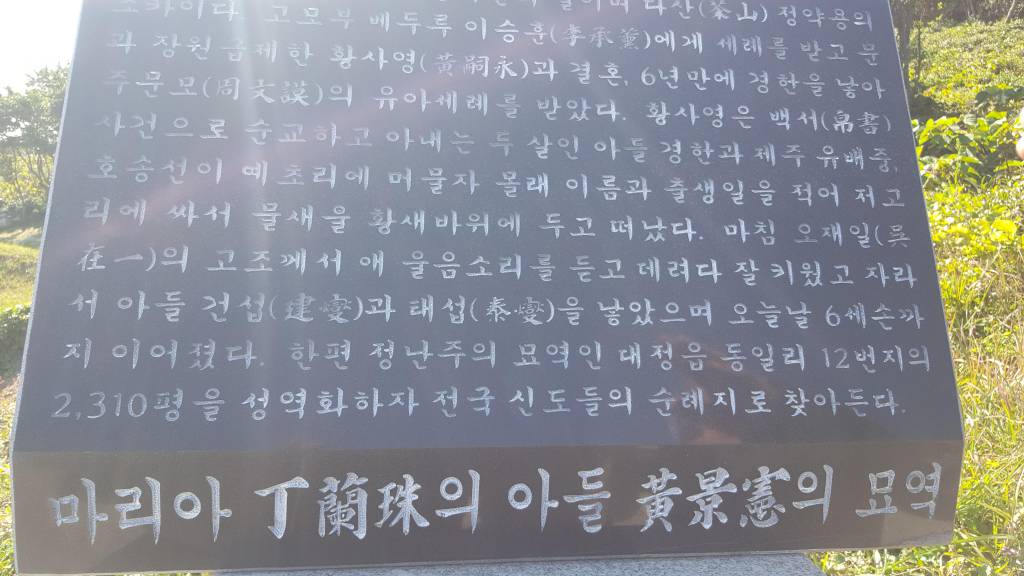 다산(茶山) 정약용의
과 장원급제한 황사영(黃嗣永)과 결혼, 6년만에 경한을 낳아
고모부 베두루 이승훈(李承薰)에게 세례를 받고 문
주문모(周文謨)의 유아세례를 받았다. 황사영은 백서(帛書)
사건으로 순교하고 아내는 두 살인 아들 경한과 제주 유배중,
호송선이 예초리에 머물자 몰래 이름과 출생일을 적어 저고
리에 싸서 물새울 황새바위에 두고 떠났다. 마침 오재일(吳
在一)의 고조께서 애 울음소리를 듣고 데려다 잘 키웠고 자라
서 아들 건섭(建燮)과 태섭(泰燮)을 낳았으며 오늘날 6세손까
지 이어졌다. 한편 정난주의 묘역인 대정읍 동일리 12번지의
2,310평을 성역화하자 전국 신도들의 순례지로 찾아든다.
마리아 丁蘭珠의 아들 黃景憲의 묘역